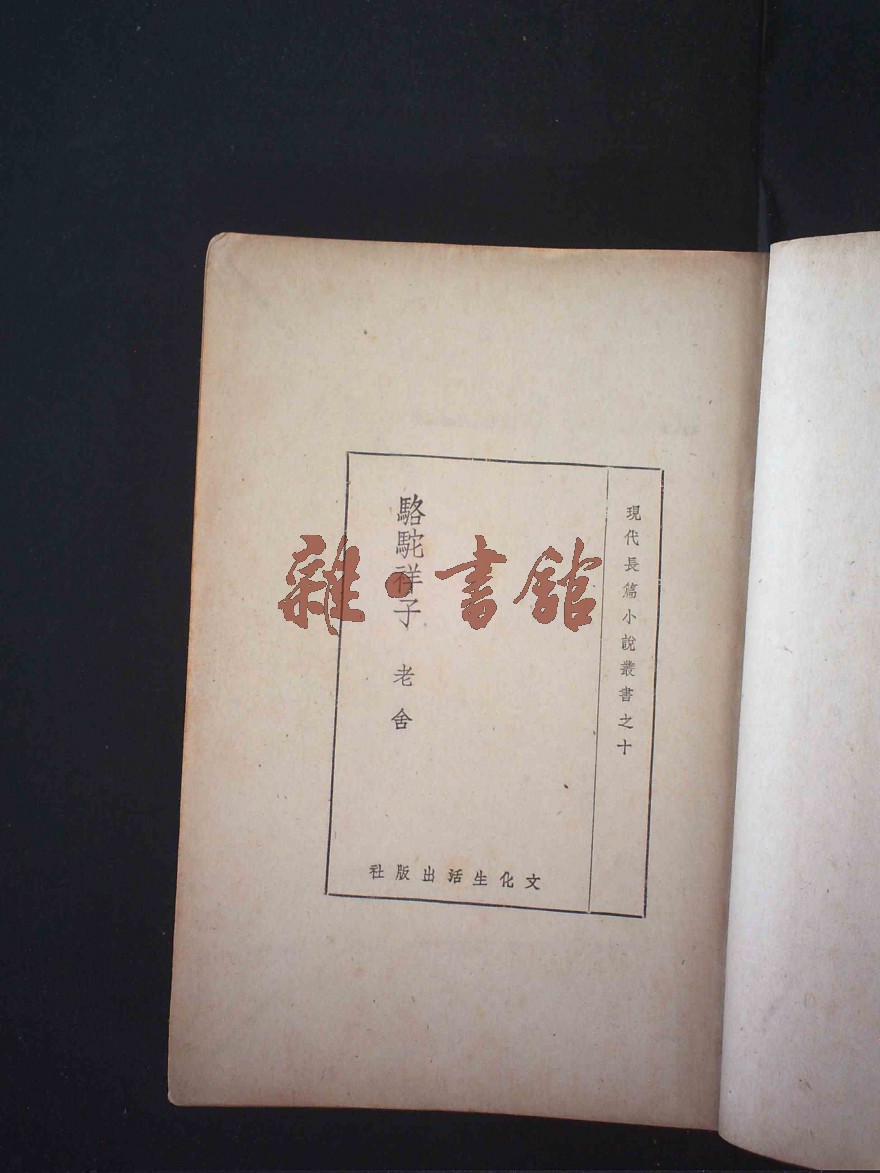 現代長篇小說叢書之十
駱駝祥子 老舍
文化生活出版社
雜·書館